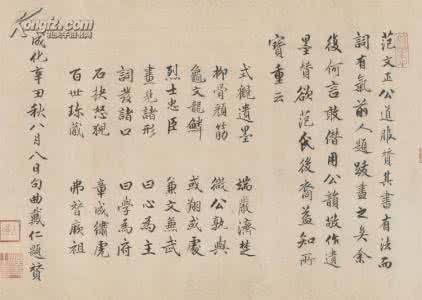 Kongfz.com
范文正公道服贊其書有法而
詞有氣前人題跋盡之矣余
復何言敢僭用公韻敬作遺
墨贊欲范氏後裔益知所
寶重云
式觀遺墨 端嚴濟楚
柳骨顏筋 微公孰與
龜文龍鱗 或翔或處
烈士忠臣 兼文兼武
畫見諸形 曰心為主
詞發諸口 曰學為府
石抉怒猊 章成繡虎
百世珎藏 弗替厥祖
成化辛丑秋八月八日句曲戴仁題贊